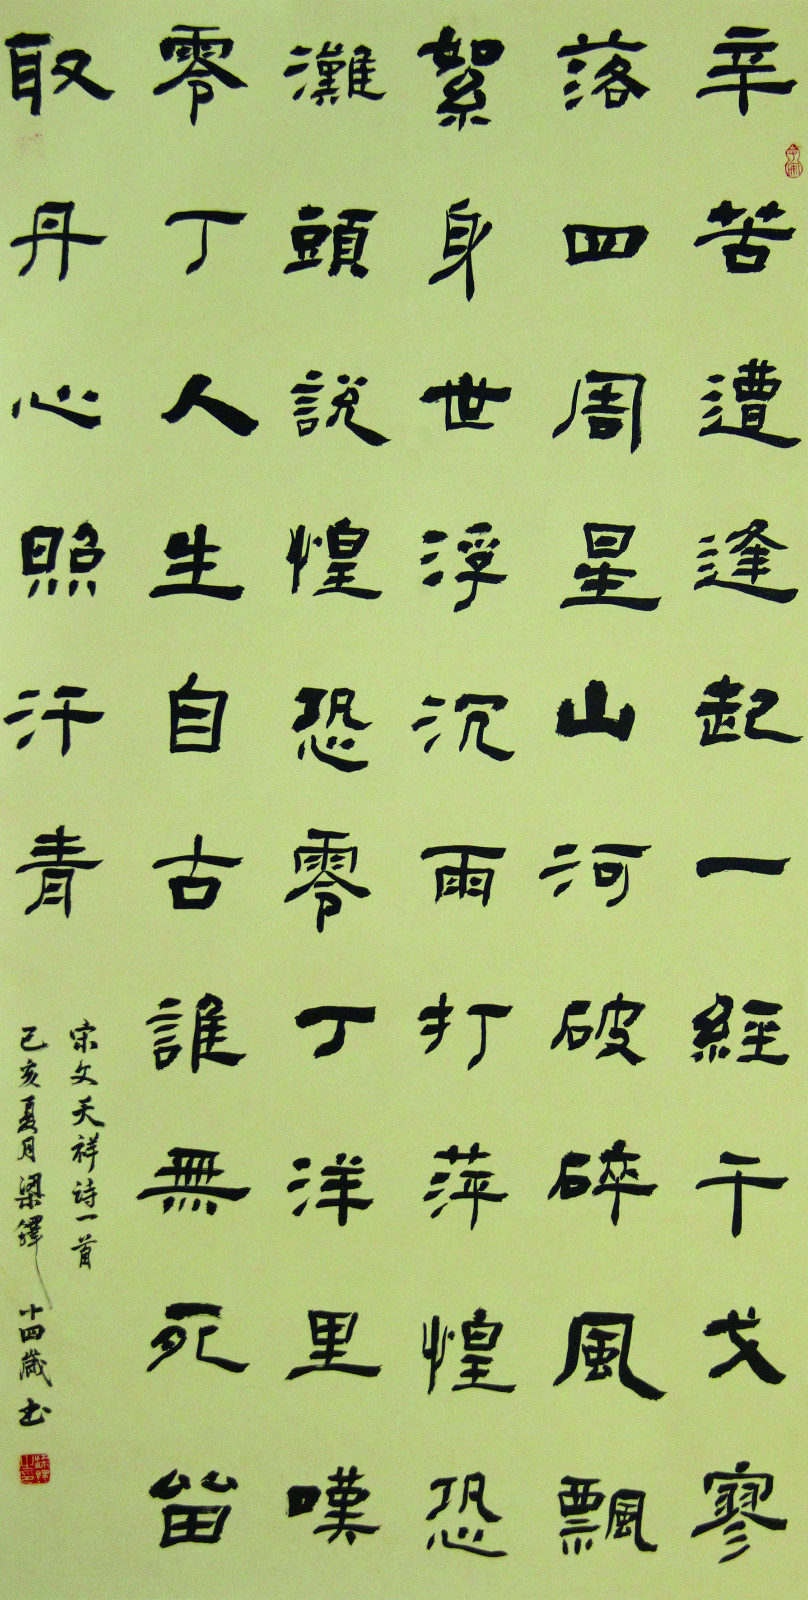 辛苦遭逢起一經干戈寥
落四周星山河破碎風飄
絮身世浮沉雨打萍惶恐
灘頭說惶恐零丁洋里嘆
零丁人生自古誰無死留
取丹心照汗青
宋文天祥诗一首
己亥夏月梁鐸十四歲书